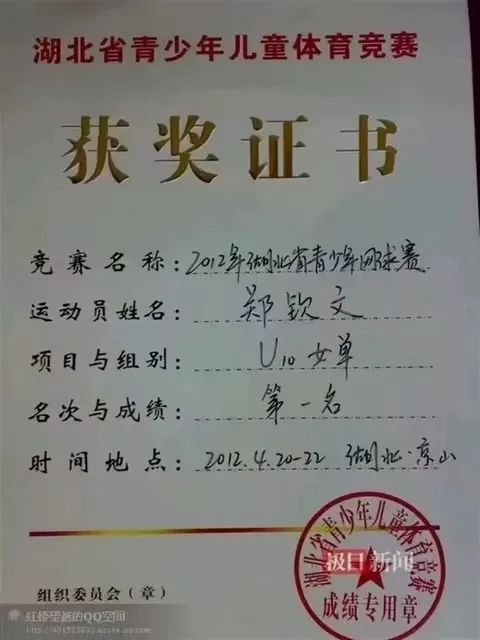 湖北省青少年儿童体育竞赛
获奖证书
竞赛名称：2012年湖北省青少年网球赛
运动员姓名：郑钦文
项目与组别：U10女单
名次与成绩：第一名
时间地点：2012.4.20-22 湖北·京山
湖北省青少年儿童体育竞赛
极目新闻
成绩专用章
组织委员会（章）
红楼望越的QQ空间